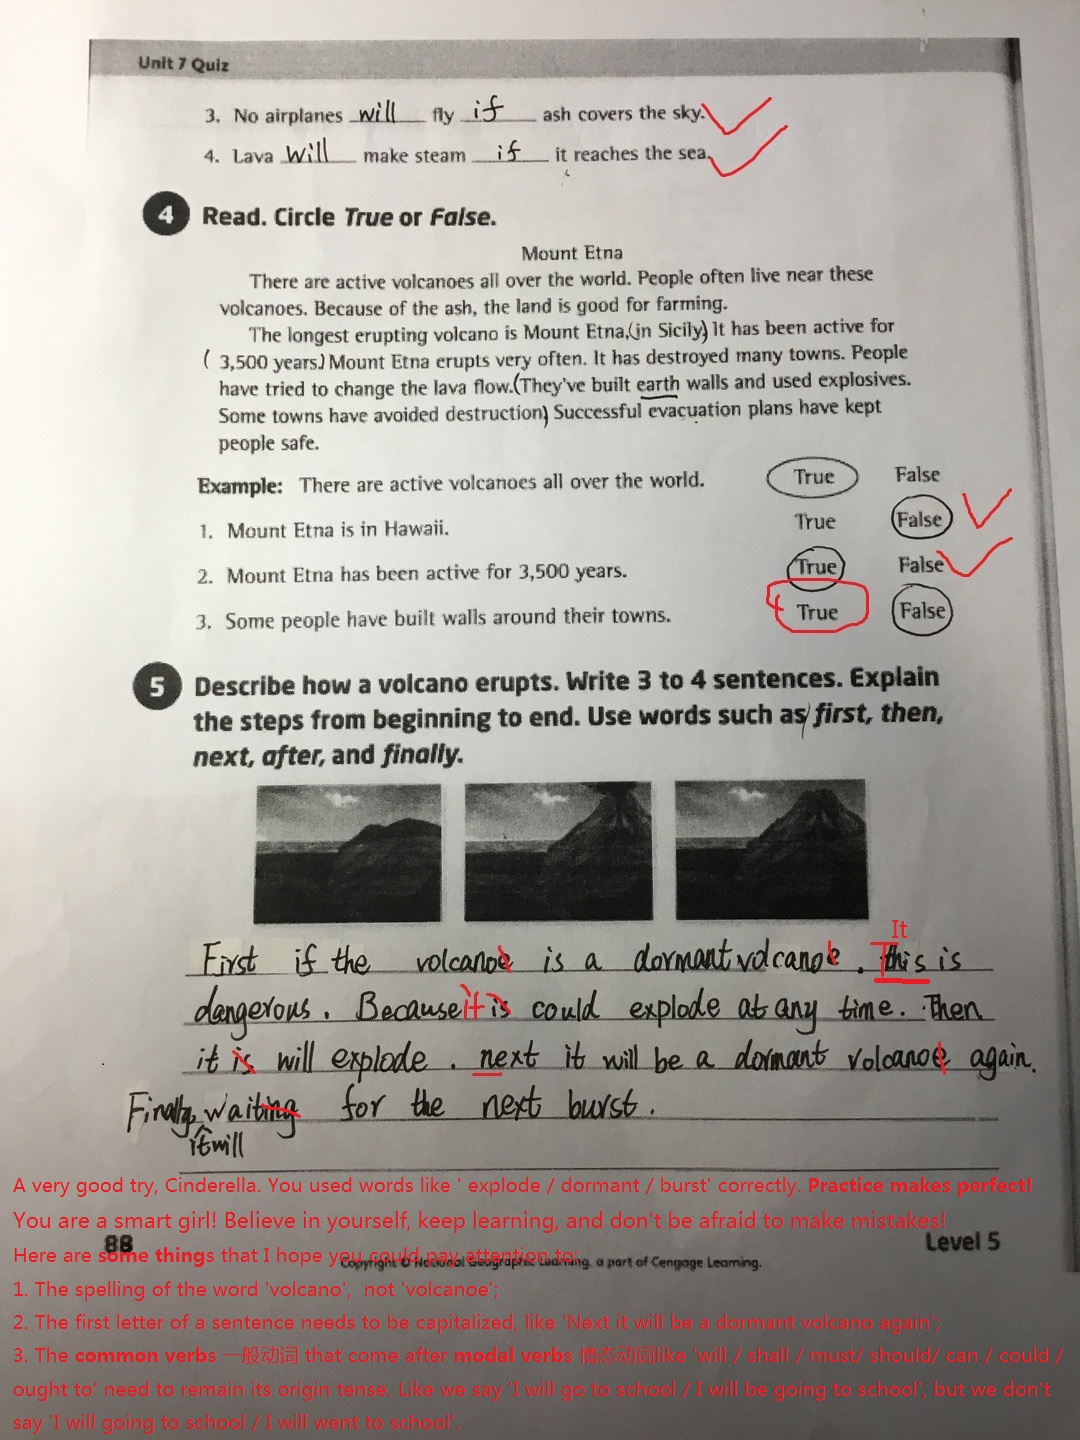 Unit 7 Quiz
3. No airplanes will fly if ash covers the sky.
4. Lava will make steam if it reaches the sea.
4 Read. Circle True or False.
Mount Etna
There are active volcanoes all over the world. People often live near these
volcanoes. Because of the ash, the land is good for farming.
The longest erupting volcano is Mount Etna, (in Sicily) It has been active for
( 3,500 years.) Mount Etna erupts very often. It has destroyed many towns. People
have tried to change the lava flow. (They've built earth walls and used explosives.
Some towns have avoided destruction) Successful evacuation plans have kept
people safe.
Example: There are active volcanoes all over the world. True False
1. Mount Etna is in Hawaii. True False
2. Mount Etna has been active for 3,500 years. True False
3. Some people have built walls around their towns. True False
5 Describe how a volcano erupts. Write 3 to 4 sentences. Explain
the steps from beginning to end. Use words such as first, then,
next, after, and finally.
It
First if the volcanoe is a dormant volcanoe. this is
dangerous. Because it is could explode at any time. Then
it is will explode. next it will be a dormant volcanoe again.
Finally, waiting for the next burst.
it will
A very good try, Cinderella. You used words like ' explode / dormant / burst' correctly. Practice makes perfect!
You are a smart girl! Believe in yourself, keep learning, and don't be afraid to make mistakes!
88 Level 5
Here are some things that I hope you could pay attention to:
Copyright © National Geographic Learning, a part of Cengage Learning.
1. The spelling of the word 'volcano', not 'volcanoe';
2. The first letter of a sentence needs to be capitalized, like 'Next it will be a dormant volcano again';
3. The common verbs 一般动词 that come after modal verbs 情态动词like 'will / shall / must/ should/ can / could /
ought to' need to remain its origin tense. Like we say 'I will go to school / I will be going to school', but we don't
say 'I will going to school / I will went to school'.